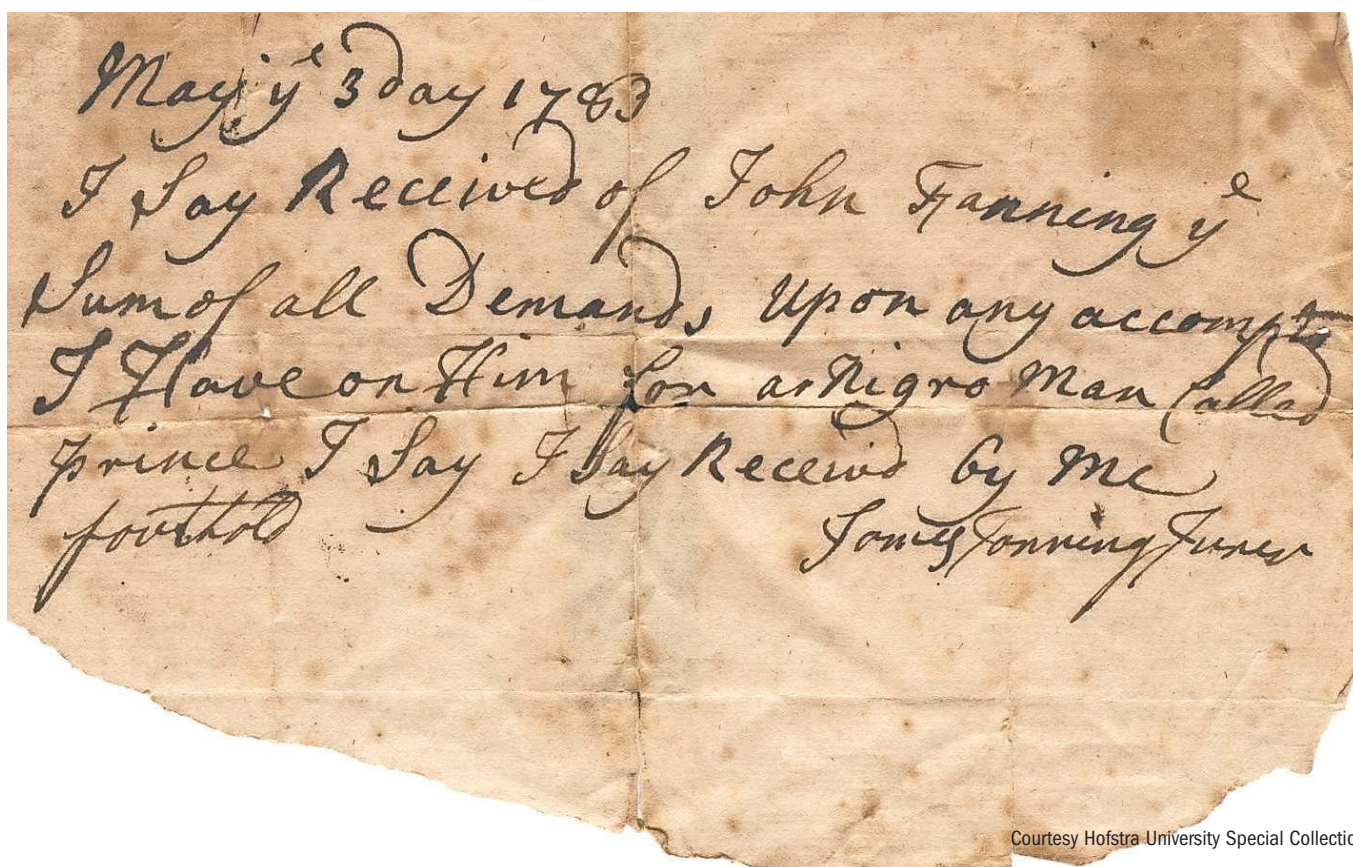 May yᵉ 3 day 1783
I Say Received of John Fanning yᵉ
Sum of all Demands Upon any accompt
I Have on Him for a Nigro Man Called
prince I Say I Say Receivd by Me
fouthold James Fanning Juner
Courtesy Hofstra University Special Collectio